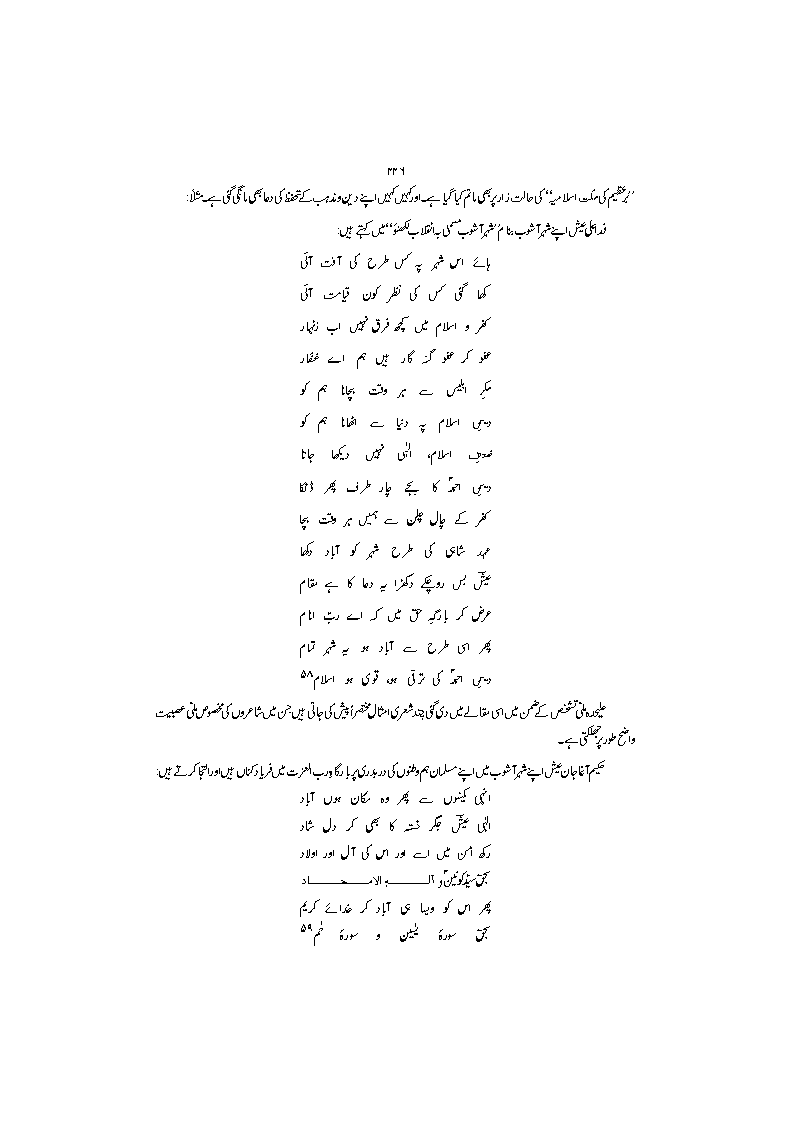 ۲۲۶
’’برعظیم کی ملت اسلامیہ‘‘ کی حالت زار پر بھی ماتم کیا گیا ہے۔ اور کہیں کہیں اپنے دین و مذہب کے تحفظ کی دعا بھی مانگی گئی ہے۔ مثلاً:
فدا علی عیش اپنے شہر آشوب بنام ’’شہر آشوب مسمی بہ انقلاب لکھنؤ‘‘ میں کہتے ہیں:
ہائے اس شہر پہ کس طرح کی آفت آئی
کھا گئی کس کی نظر کون قیامت آئی
کفر و اسلام میں کچھ فرق نہیں اب زنہار
عفو کر عفو گنہ گار ہیں ہم اے غفار
مکرِ ابلیس سے ہر وقت بچانا ہم کو
دینِ اسلام پہ دنیا سے اٹھانا ہم کو
ضعفِ اسلام، الٰہی نہیں دیکھا جاتا
دینِ احمدؐ کا بجے چار طرف پھر ڈنکا
کفر کے چال چلن سے ہمیں ہر وقت بچا
عہد شاہی کی طرح شہر کو آباد دکھا
عیشؔ بس رو چکے دکھڑا یہ دعا کا ہے مقام
عرض کر بارگہِ حق میں کہ اے ربِّ انام
پھر اسی طرح سے آباد ہو یہ شہر تمام
دینِ احمدؐ کی ترقی ہو، قوی ہو اسلام۵۸
علیحدہ ملی تشخص کے ضمن میں اسی مقالے میں دی گئی چند شعری امثال مختصراً پیش کی جاتی ہیں جن میں شاعروں کی مخصوص ملی عصبیت
واضح طور پر جھلکتی ہے۔
حکیم آغا جان عیش اپنے شہر آشوب میں اپنے مسلمان ہم وطنوں کی دربدری پر بارگاہ رب العزت میں فریاد کناں ہیں اور التجا کرتے ہیں:
انہی مکینوں سے پھر وہ مکان ہوں آباد
الٰہی عیشؔ جگر خستہ کا بھی کر دل شاد
رکھ امن میں اسے اور اس کی آل اور اولاد
بحق سیّد کونینؐ و آلہ الامجاد
پھر اس کو ویسا ہی آباد کر خدائے کریم
بحق سورۂ یٰسین و سورۂ حٰم۵۹